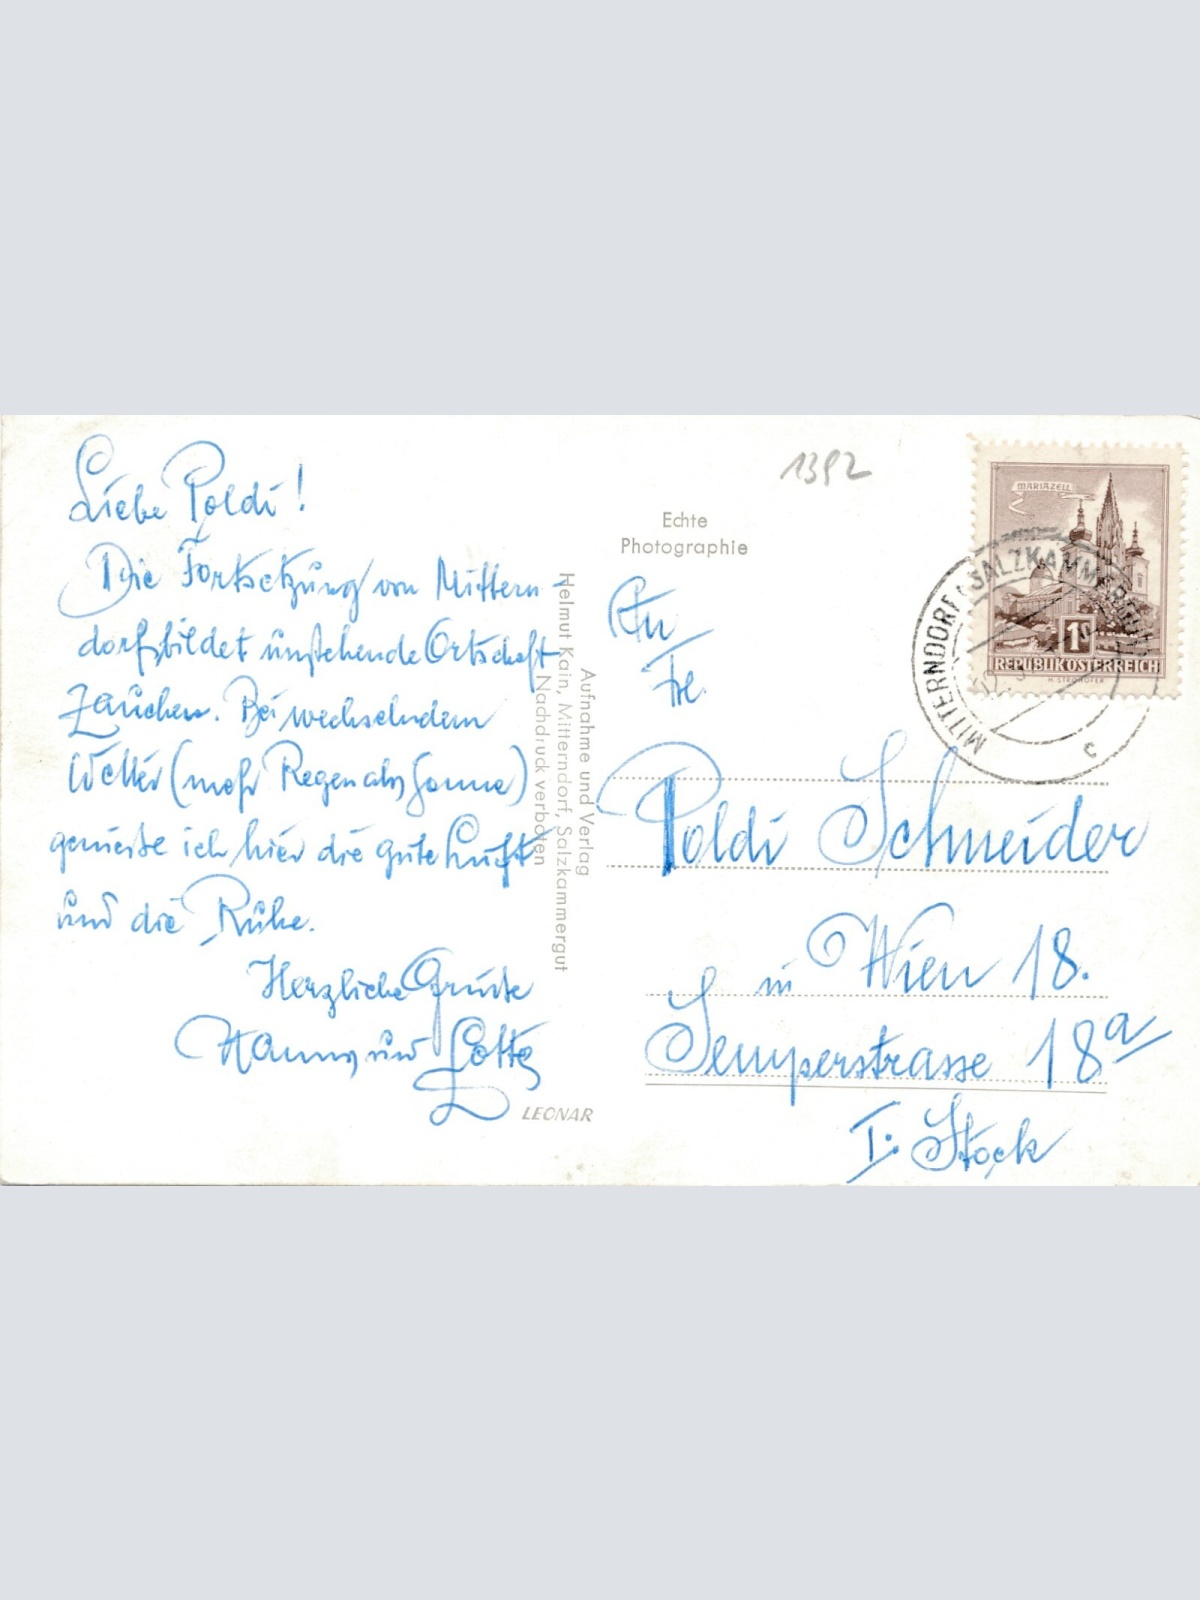 Liebe Poldi!
Die Fortsetzung von Mittern-
dorf, bildet umstehende Ortschaft
Zauchen. Bei wechselndem
Wetter (mehr Regen als Sonne)
genieße ich hier die gute Luft
und die Ruhe.
Herzliche Grüße
Hanns und Lotte
LEONAR
Aufnahme und Verlag
Helmut Kain, Mitterndorf, Salzkammergut
Nachdruck verboten
1392
Echte
Photographie
MARIAZELL
1S
REPUBLIK ÖSTERREICH
H. STROHOFER
MITTERNDORF, SALZKAMMERGUT
c
An
Frl.
Poldi Schneider
in Wien 18.
Semperstrasse 18a
I. Stock